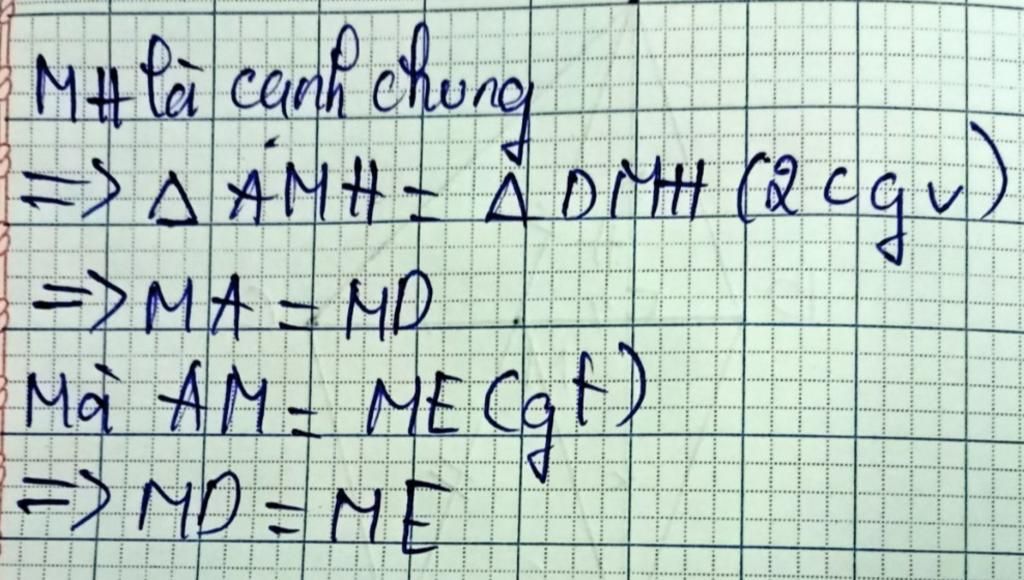 MH là cạnh chung
=> Δ AMH = Δ DMH (2 cgv)
=> MA = MD
Mà AM = ME (gt)
=> MD = ME